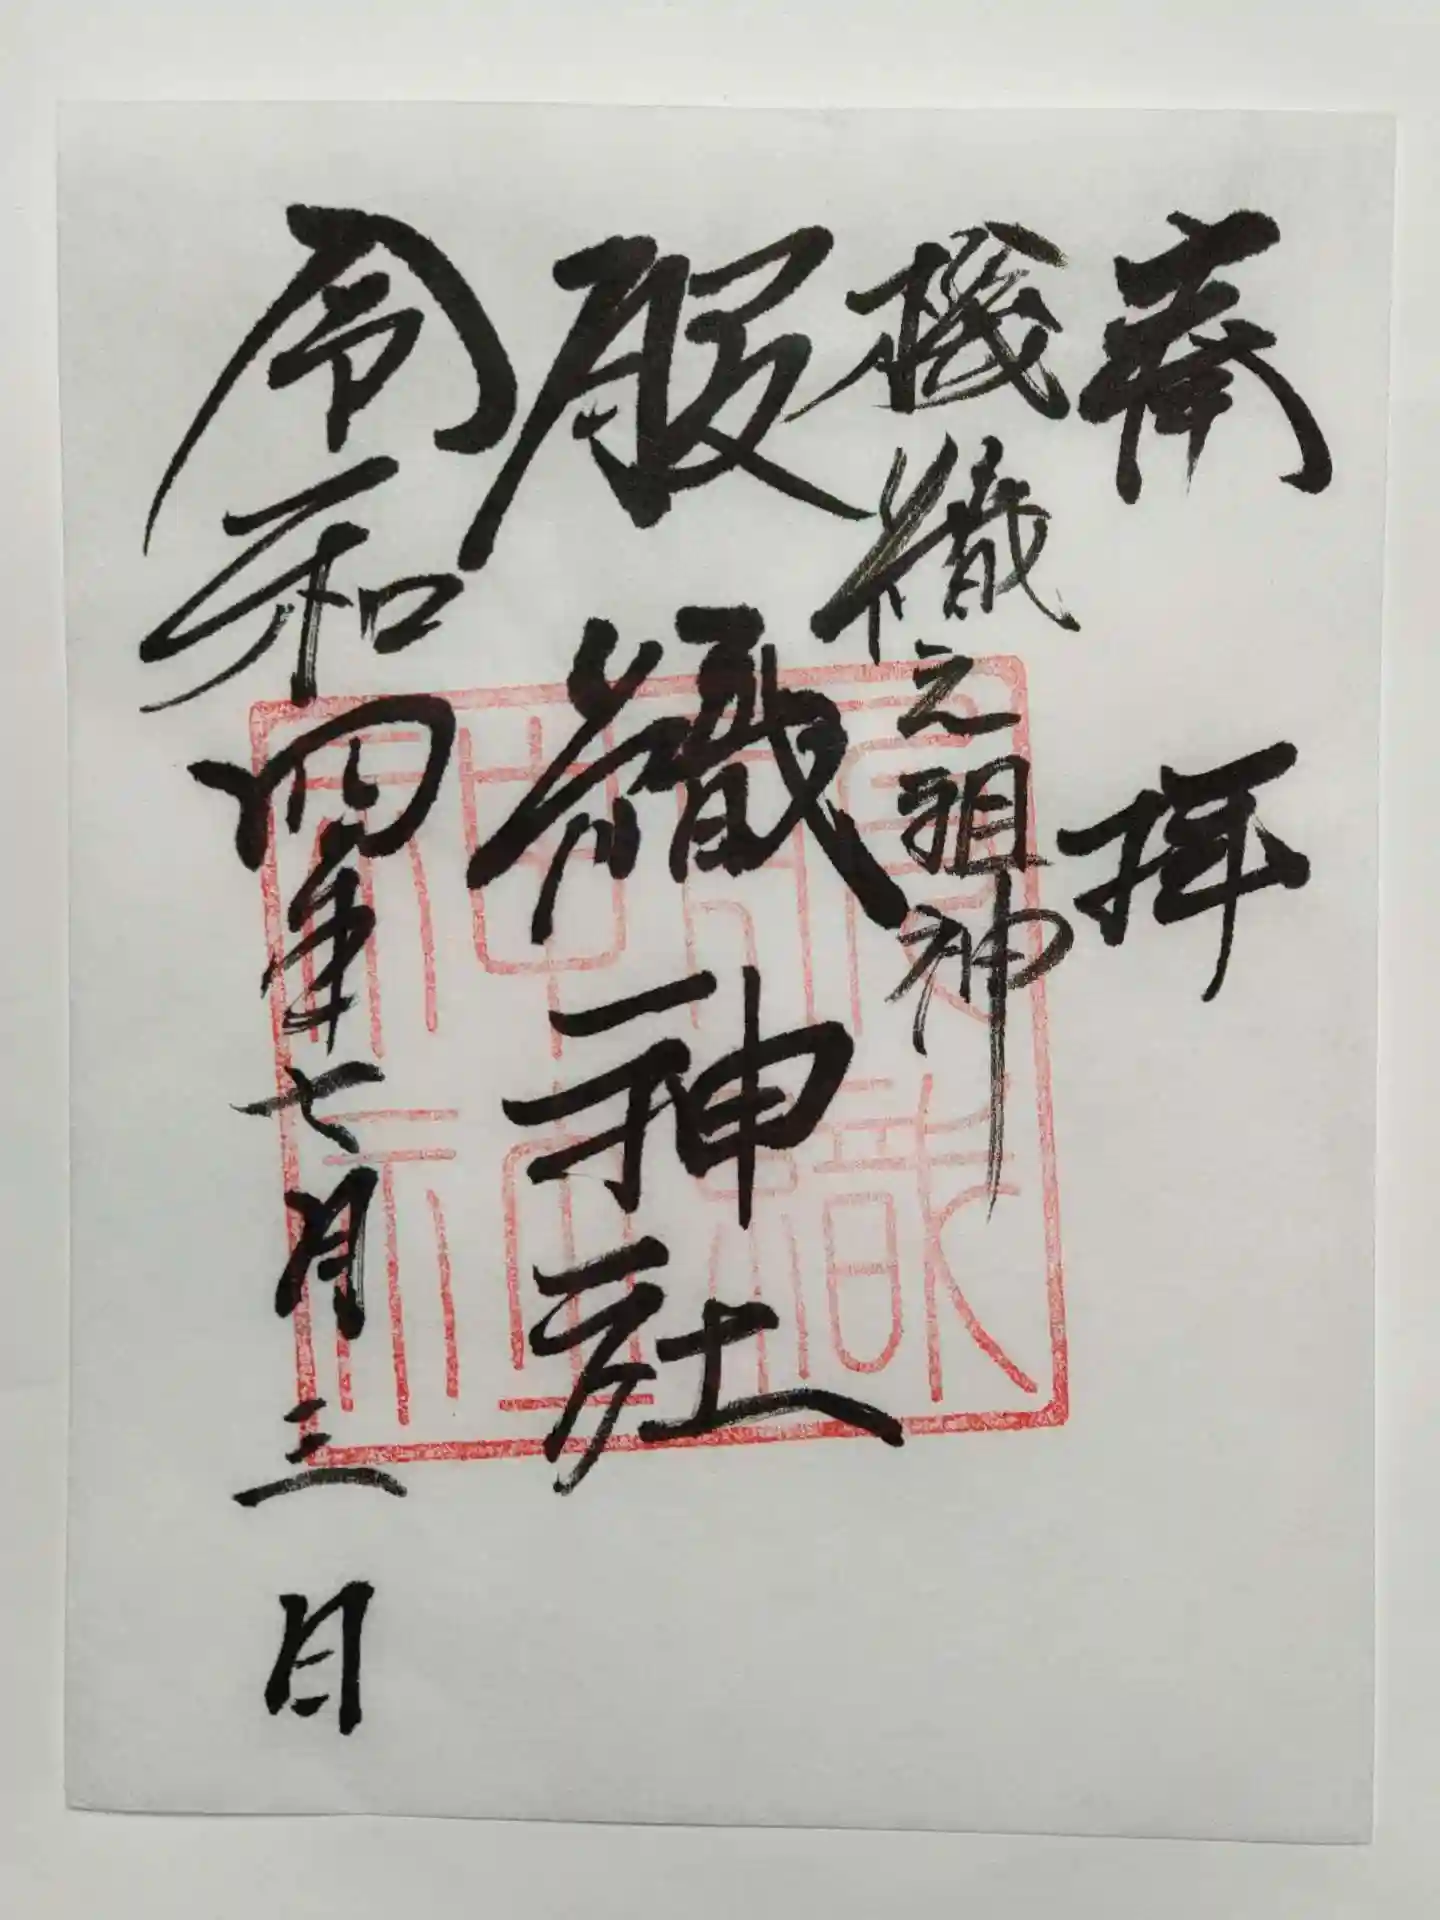 奉拝
機織之祖神
服織神社
令和四年七月三日
服織神社